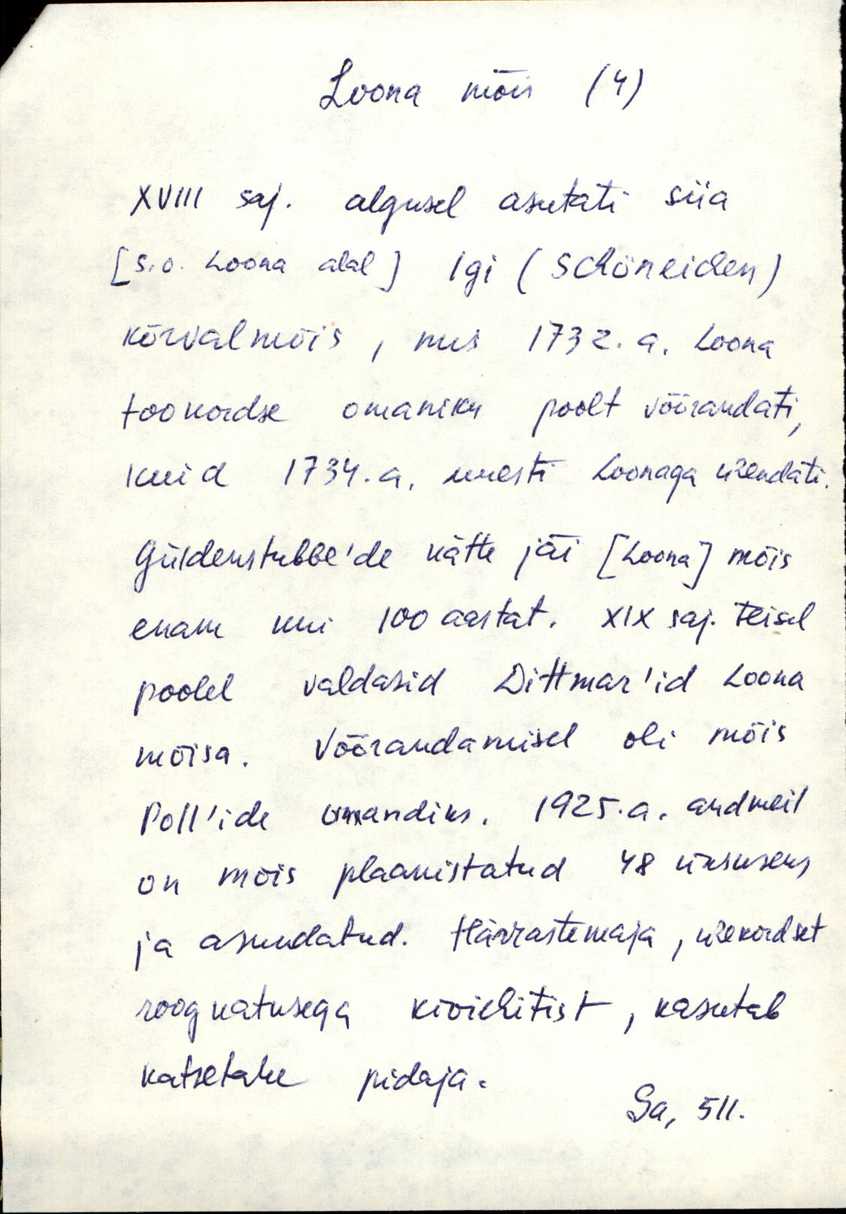 Loona mõis (4)
XVIII saj. algusel asutati siia
[s.o. Loona alal] Igi (Schöneichen)
kõrvalmõis, mis 1732.a. Loona
tookordse omaniku poolt võõrandati,
kuid 1734.a. uuesti Loonaga ühendati.
Güldenstubbe'de kätte jäi [Loona] mõis
enam kui 100 aastat. XIX saj. teisel
poolel valdasid Dittmar'id Loona
mõisa. Võõrandamisel oli mõis
Poll'ide omandiks. 1925.a. andmeil
on mõis plaanistatud 48 üksuseks
ja asundatud. Härrastemaja, ühekordset
roogkatusega kiviehitist, kasutab
katsetalu pidaja.
Sa, 511.